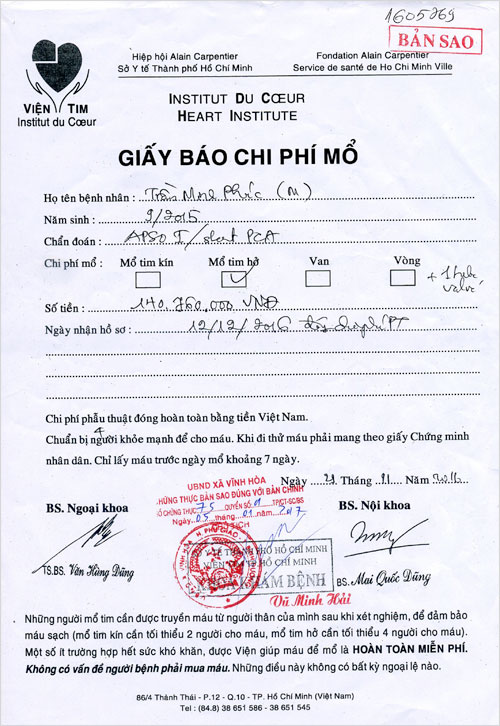 1605269
BẢN SAO
Hiệp hội Alain Carpentier
Sở Y tế Thành phố Hồ Chí Minh
Fondation Alain Carpentier
Service de santé de Ho Chi Minh Ville
VIỆN TIM
Institut du Cœur
INSTITUT DU CŒUR
HEART INSTITUTE
GIẤY BÁO CHI PHÍ MỔ
Họ tên bệnh nhân : Trần Minh Phúc (M)
Năm sinh : 9/2015
Chẩn đoán : APSO I / PCA
Chi phí mổ : Mổ tim kín Mổ tim hở Van Vòng
+ 1 tube valvé
Số tiền : 140.760.000 VNĐ
Ngày nhận hồ sơ : 12/12/2016 PT
Chi phí phẫu thuật đóng hoàn toàn bằng tiền Việt Nam.
Chuẩn bị 4 người khỏe mạnh để cho máu. Khi đi thử máu phải mang theo giấy Chứng minh
nhân dân. Chỉ lấy máu trước ngày mổ khoảng 7 ngày.
Ngày 21 Tháng 11 Năm 2016
UBND XÃ VĨNH HÒA
CHỨNG THỰC BẢN SAO ĐÚNG VỚI BẢN CHÍNH
SỐ CHỨNG THỰC 75 QUYỂN SỐ 01 TP/CT-SC/BS
Ngày 05 tháng 01 năm 2017
BS. Ngoại khoa
BS. Nội khoa
Y TẾ THÀNH PHỐ HỒ CHÍ MINH
KHÁM BỆNH
TS.BS. Văn Hùng Dũng
BS. Mai Quốc Dũng
Vũ Minh Hải
Những người mổ tim cần được truyền máu từ người thân của mình sau khi xét nghiệm, để đảm bảo
máu sạch (mổ tim kín cần tối thiểu 2 người cho máu, mổ tim hở cần tối thiểu 4 người cho máu).
Một số ít trường hợp hết sức khó khăn, được Viện giúp máu để mổ là HOÀN TOÀN MIỄN PHÍ.
Không có vấn đề người bệnh phải mua máu. Những điều này không có bất kỳ ngoại lệ nào.
86/4 Thành Thái - P.12 - Q.10 - TP. Hồ Chí Minh (Việt Nam)
Tel : (84.8) 38 651 586 - 38 651 545